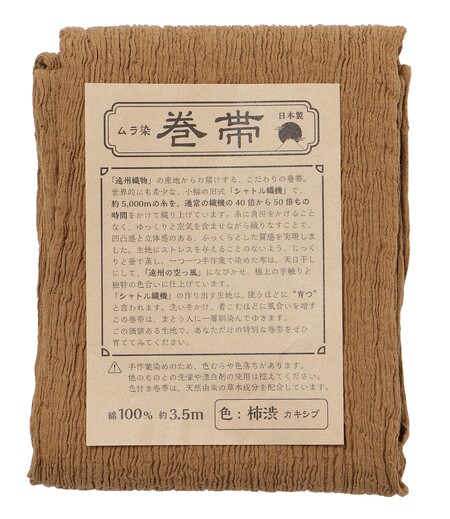 ムラ染 巻帯 日本製
「遠州織物」の産地からお届けする、こだわりの巻帯。
世界的にも希少な、小幅の旧式「シャトル織機」で、
約5,000mの糸を、通常の織機の40倍から50倍もの
時間をかけて織り上げています。糸に負担をかけること
なく、ゆっくりと空気を含ませながら織りなすことで、
凹凸感と立体感のある、ふっくらとした質感を実現しま
した。生地にストレスを与えることのないよう、じっく
りと釜で蒸し、一つ一つ手作業で染めた布は、天日干し
にして、「遠州の空っ風」になびかせ、極上の手触りと
独特の色合いに仕上げています。
「シャトル織機」の作り出す生地は、使うほどに“育つ”
と言われます。洗いをかけ、着こむほどに風合いを増す
この巻帯は、まとう人に一層馴染んでゆきます。
この価値ある生地で、あなただけの特別な巻帯をぜひ
育ててみてください。
手作業染めのため、色むらや色落ちがあります。
他のものとの洗濯や漂白剤の使用は控えてください。
色付き巻帯は、天然由来の草木成分を配合しています。
綿100% 約3.5m 色:柿渋 カキシブ